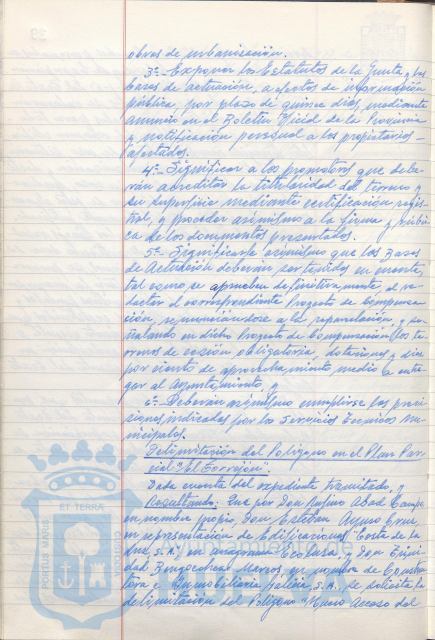 obras de urbanización.
3º.- Exponer los Estatutos de la Junta y las
bases de actuación, a efectos de información
pública, por plazo de quince días, mediante
anuncio en el Boletín Oficial de la Provincia
y notificación personal a los propietarios
afectados.
4º.- Significar a los promotores que debe-
rán acreditar la titularidad del terreno y
su superficie mediante certificación regis-
tral, y proceder asimismo a la firma y rúbri-
ca de los documentos presentados.
5º.- Significarle asimismo que las Bases
de Actuación deberán ser tenidas en cuenta,
tal como se aprueben definitivamente al re-
dactar el correspondiente Proyecto de Compensa-
ción, renunciándose a la reparcelación, y se-
ñalando en dicho Proyecto de Compensación los te-
rrenos de cesión obligatoria, dotaciones y diez
por ciento de aprovechamiento medio a entre-
gar al Ayuntamiento, y
6º.- Deberán asimismo cumplirse las previ-
siones indicadas por los Servicios Técnicos Mu-
nicipales.
Delimitación del Polígono en el Plan Par-
cial "El Torrejón".
Dada cuenta del expediente tramitado, y
Resultando: Que por Don Rufino Abad Campo
en nombre propio, Don Esteban
en representación de Edificaciones Costa de la
Luz, S.A. en anagrama Ecolusa, y Don Trini-
dad Bengoechea Marcos en nombre de Construc-
tora e Inmobiliaria S.A. se solicita la
delimitación del Polígono "Nuevo Acceso del
PORTUS MARIS
ET TERRAE
CUSTODIA